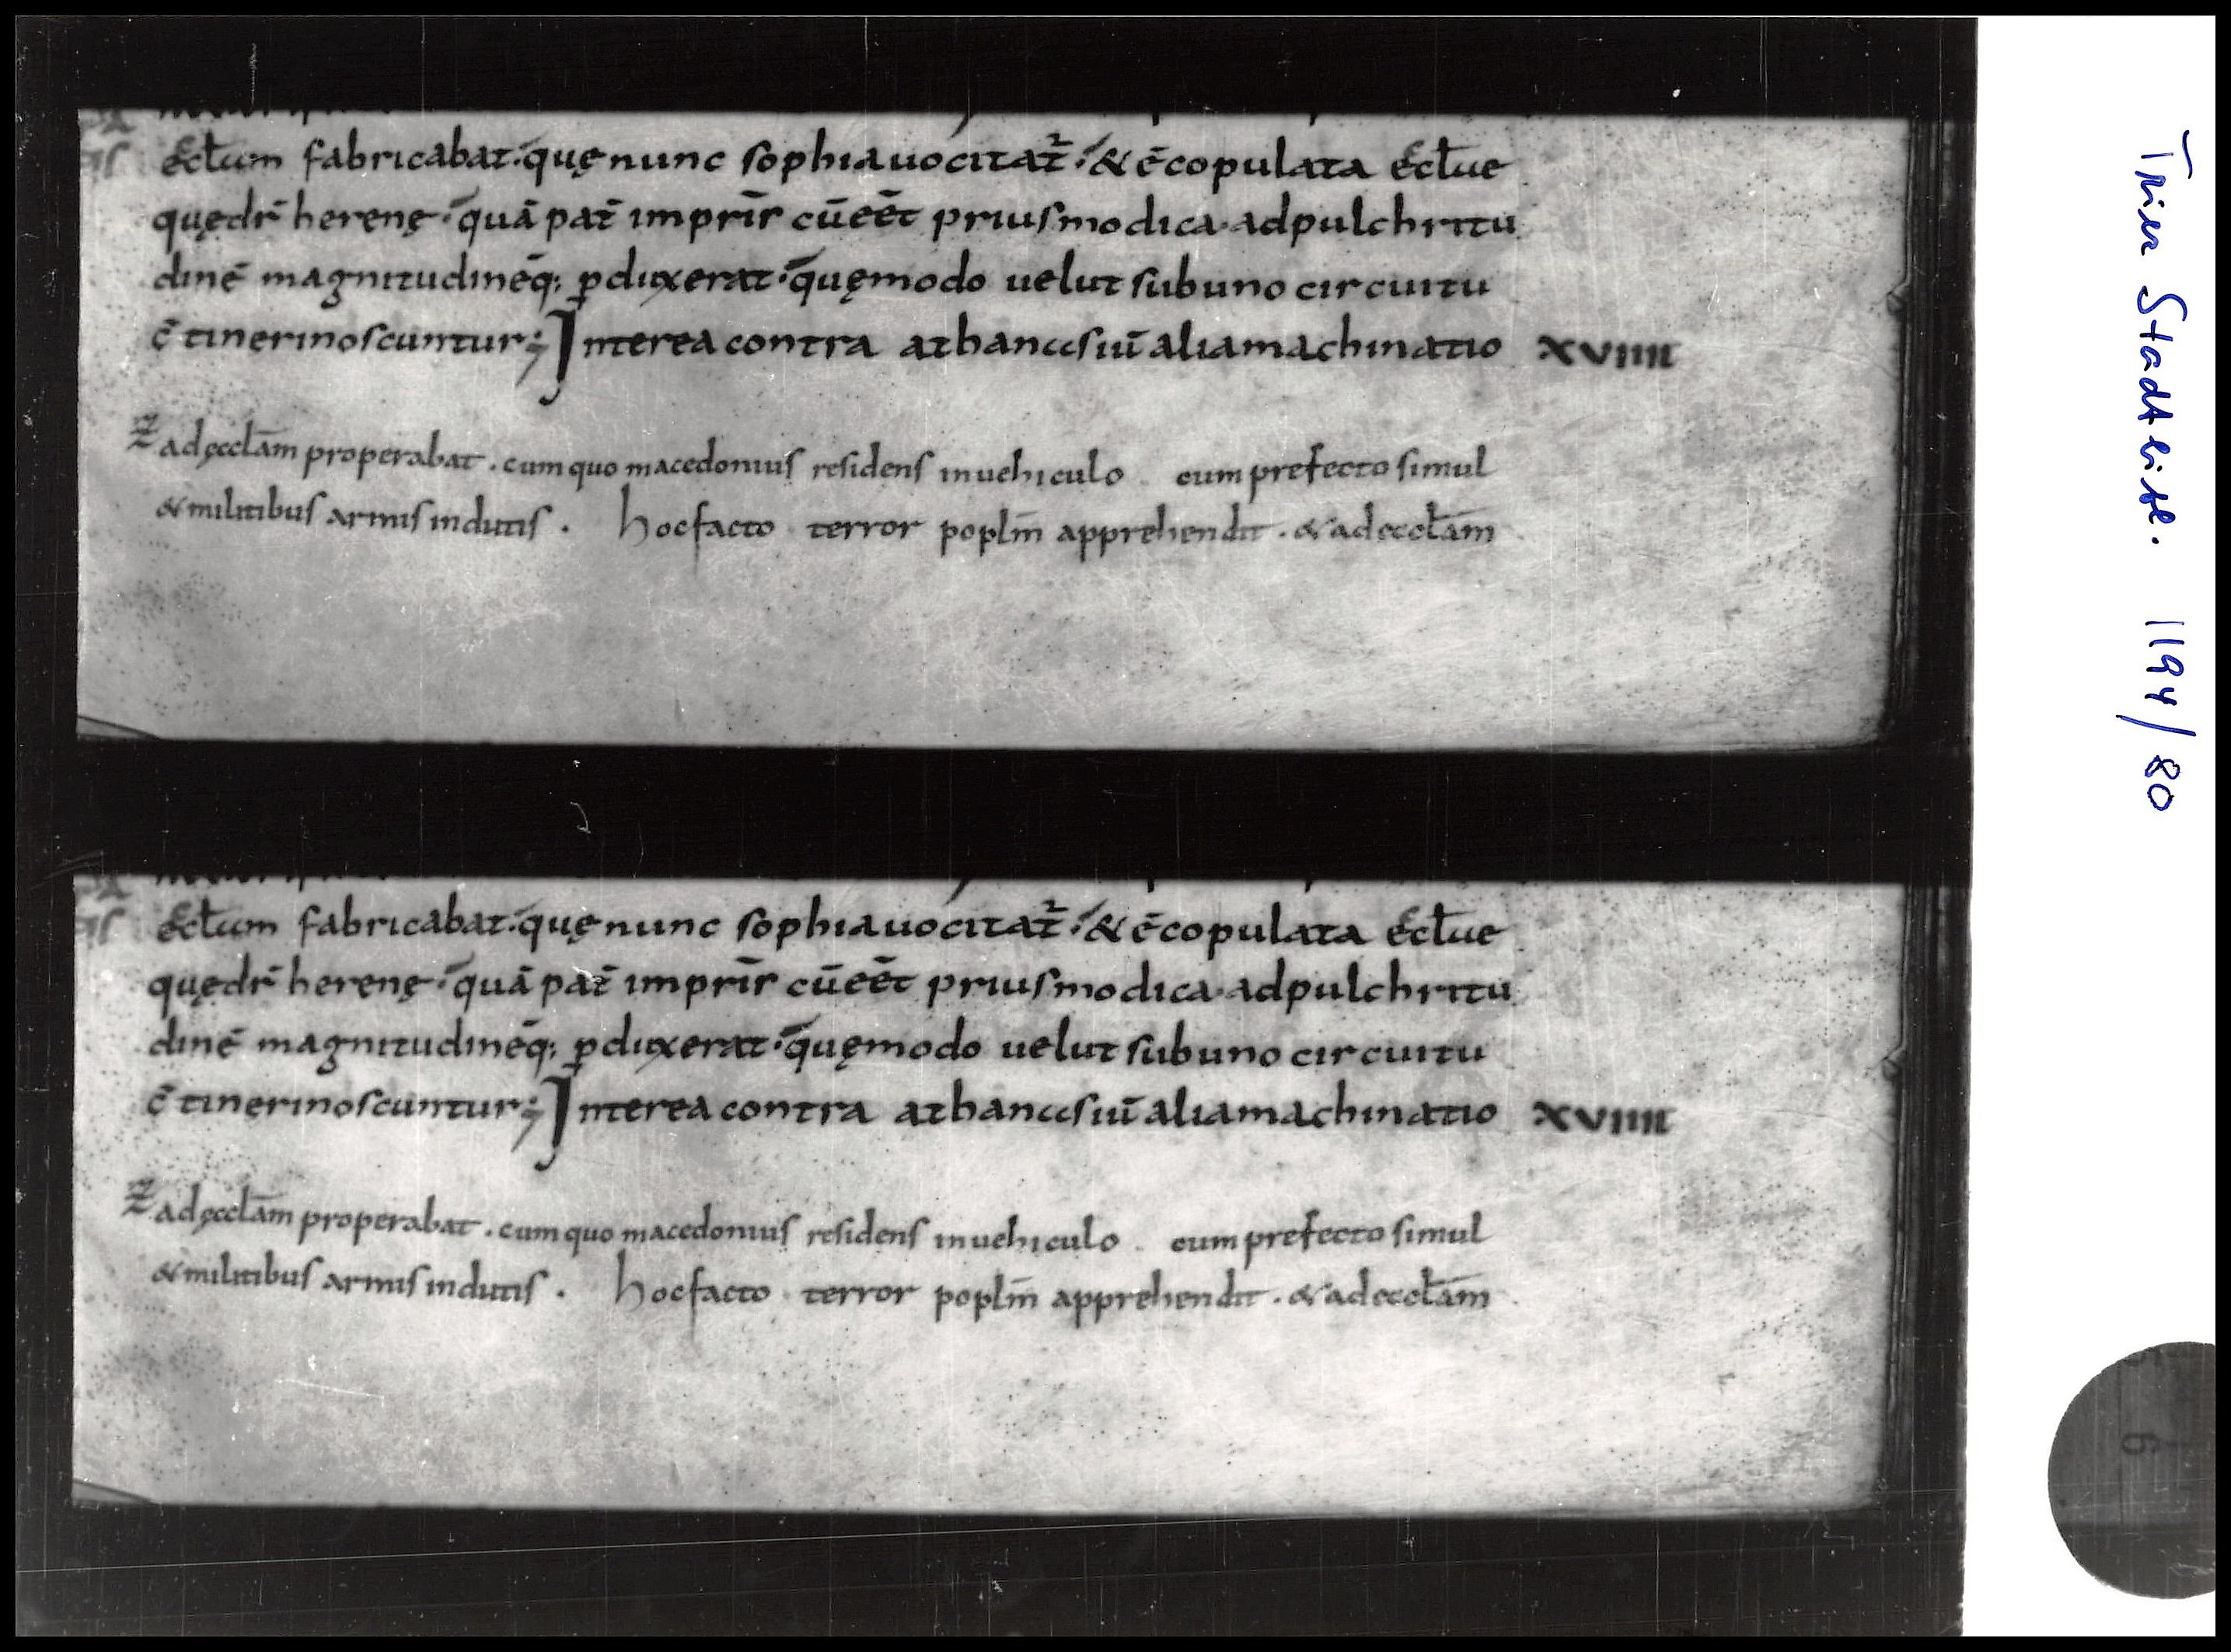 Eccłiam fabricabat. quę nunc sophia uocitat᷑. & ē copulata Eccłiae
quę dr̄ herenę. quā pat̄ impr̄ir cū eēt prius modica. ad pulchritu
dinē magnitudinēq; ꝑduxerat. quę modo uelut sub uno circuitu
c̄tineri noscuntur; Interea contra athanasiū alia machinatio XVIIII
ad ęccłam properabat. cum quo macedonius residens in uehiculo cum prefecto simul
& militibus armis indutis. hoc facto terror popłm apprehendit. & ad eccłam
Eccłiam fabricabat. quę nunc sophia uocitat᷑. & ē copulata Eccłiae
quę dr̄ herenę. quā pat̄ impr̄ir cū eēt prius modica. ad pulchritu
dinē magnitudinēq; ꝑduxerat. quę modo uelut sub uno circuitu
c̄tineri noscuntur; Interea contra athanasiū alia machinatio XVIIII
ad ęccłam properabat. cum quo macedonius residens in uehiculo cum prefecto simul
& militibus armis indutis. hoc facto terror popłm apprehendit. & ad eccłam
Trier Stadtbibl. 1194/80
6